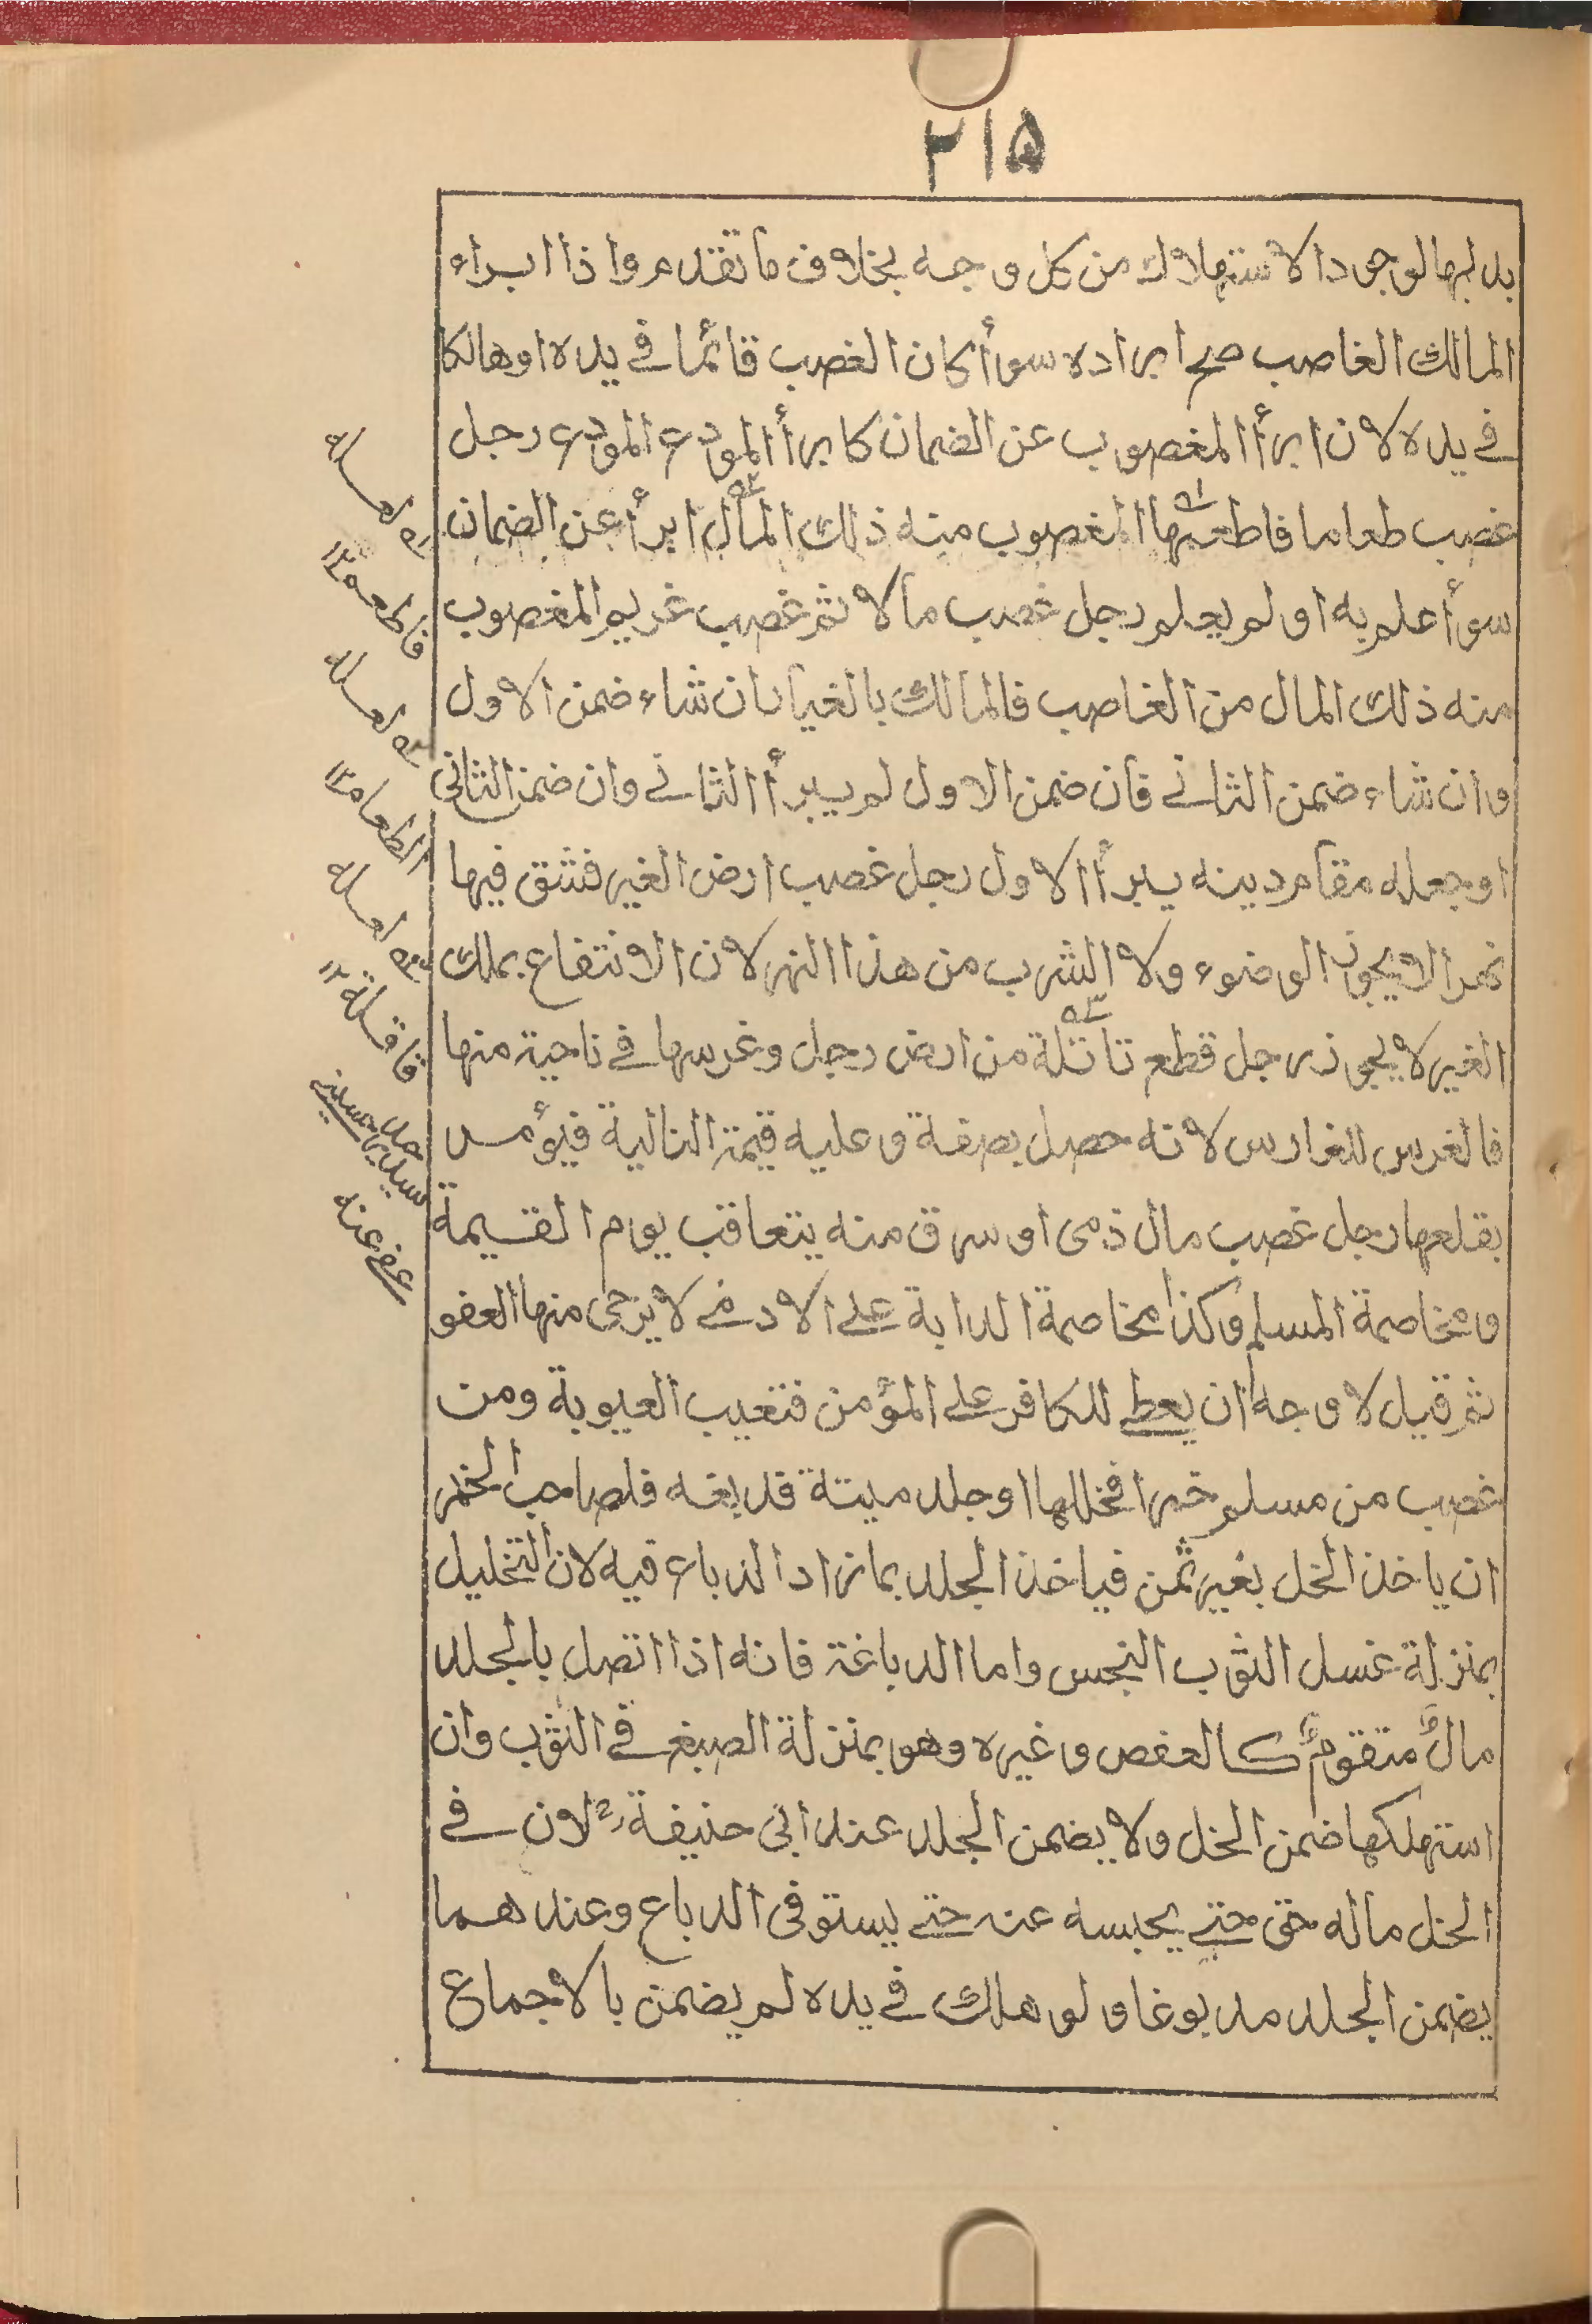 ٢١٥
بدلبها لوجود الاستهلاك من كل وجه بخلاف ما تقدم واذا ابراء
المالك الغاصب صح ابراده سوأ كان الغصب قائما في يده او هالكا
في يده لان ابرأ المغصوب عن الضمان كابرأ المودع المودع رجل
غصب طعاما فاطعمها المغصوب منه ذلك المال ابرأ عن الضمان
سوأ علم به او لم يعلم رجل غصب مالا ثم غصب غريم المغصوب
منه ذلك المال من الغاصب فالمالك بالخيار ان شاء ضمن الاول
وان شاء ضمن الثاني فان ضمن الاول لم يبرأ الثاني وان ضمن الثاني
او جعله مقام دينه يبرأ الاول رجل غصب ارض الغير فشق فيها
نهرا لا يجوز الوضوء ولا الشرب من هذا النهر لان الانتفاع بملك
الغير لا يجوز رجل قطع تاتلة من ارض رجل وغرسها في ناحية منها
فالغرس للغارس لانه حصل بصفة وعليه قيمة التالية فيؤمر
بقلعها رجل غصب مال ذمى او سرق منه يتعاقب يوم القسيمة
ومخاصمة المسلم وكذا مخاصمة الدابة على الادمي لا يرجى منها العفو
ثم قيل لا وجه ان يعطى للكافر على المؤمن فتغيب العيوبة ومن
غصب من مسلم خمرا فخللها او جلد ميتة فدبغه فلصاحب الخمر
ان ياخذ الخل بغير ثمن فياخذ الجلد بما زاد الدباع فيه لان التخليل
بمنزلة غسل الثوب النجس واما الدباغة فانه اذا اتصل بالجلد
مال متقوم كالعفص وغيره وهو بمنزلة الصبغ في الثوب وان
استهلكها ضمن الخل ولا يضمن الجلد عند ابي حنيفةؒ لان في
الخل ماله حتى حتى يحبسه عنه حتى يستوفى الدباع وعندهما
يضمن الجلد مدبوغا ولو هلك في يده لم يضمن بالاجماع
فاطعمه ١٢
الطعام ١٢
سيد حسيني
عفي عنه